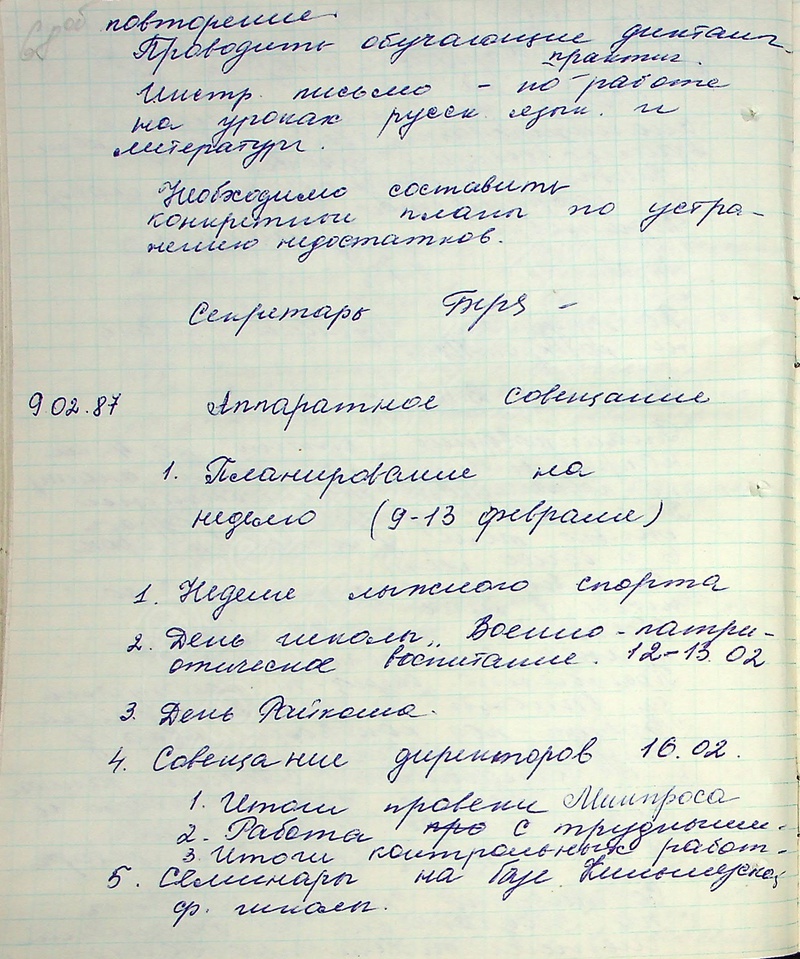 повторение
Проводить обучающие диктан-
практич.
Инстр. письмо – по работе
на уроках русск. язык. и
литератур.
Необходимо составить
конкретные планы по устра-
нению недостатков.
Секретарь
9 02.87 Аппаратное совещание
1. Планирование на
неделю (9-13 февраля)
1. Неделя лыжного спорта
2. День школы „Военно-патри-
отическое воспитание. 12-13.02
3. День Райкома.
4. Совещание директоров 16.02.
1. Итоги провеки Минпроса
2. Работа про с трудными.
3. Итоги контрольных работ.
5. Семинары на базе
ф. школы.